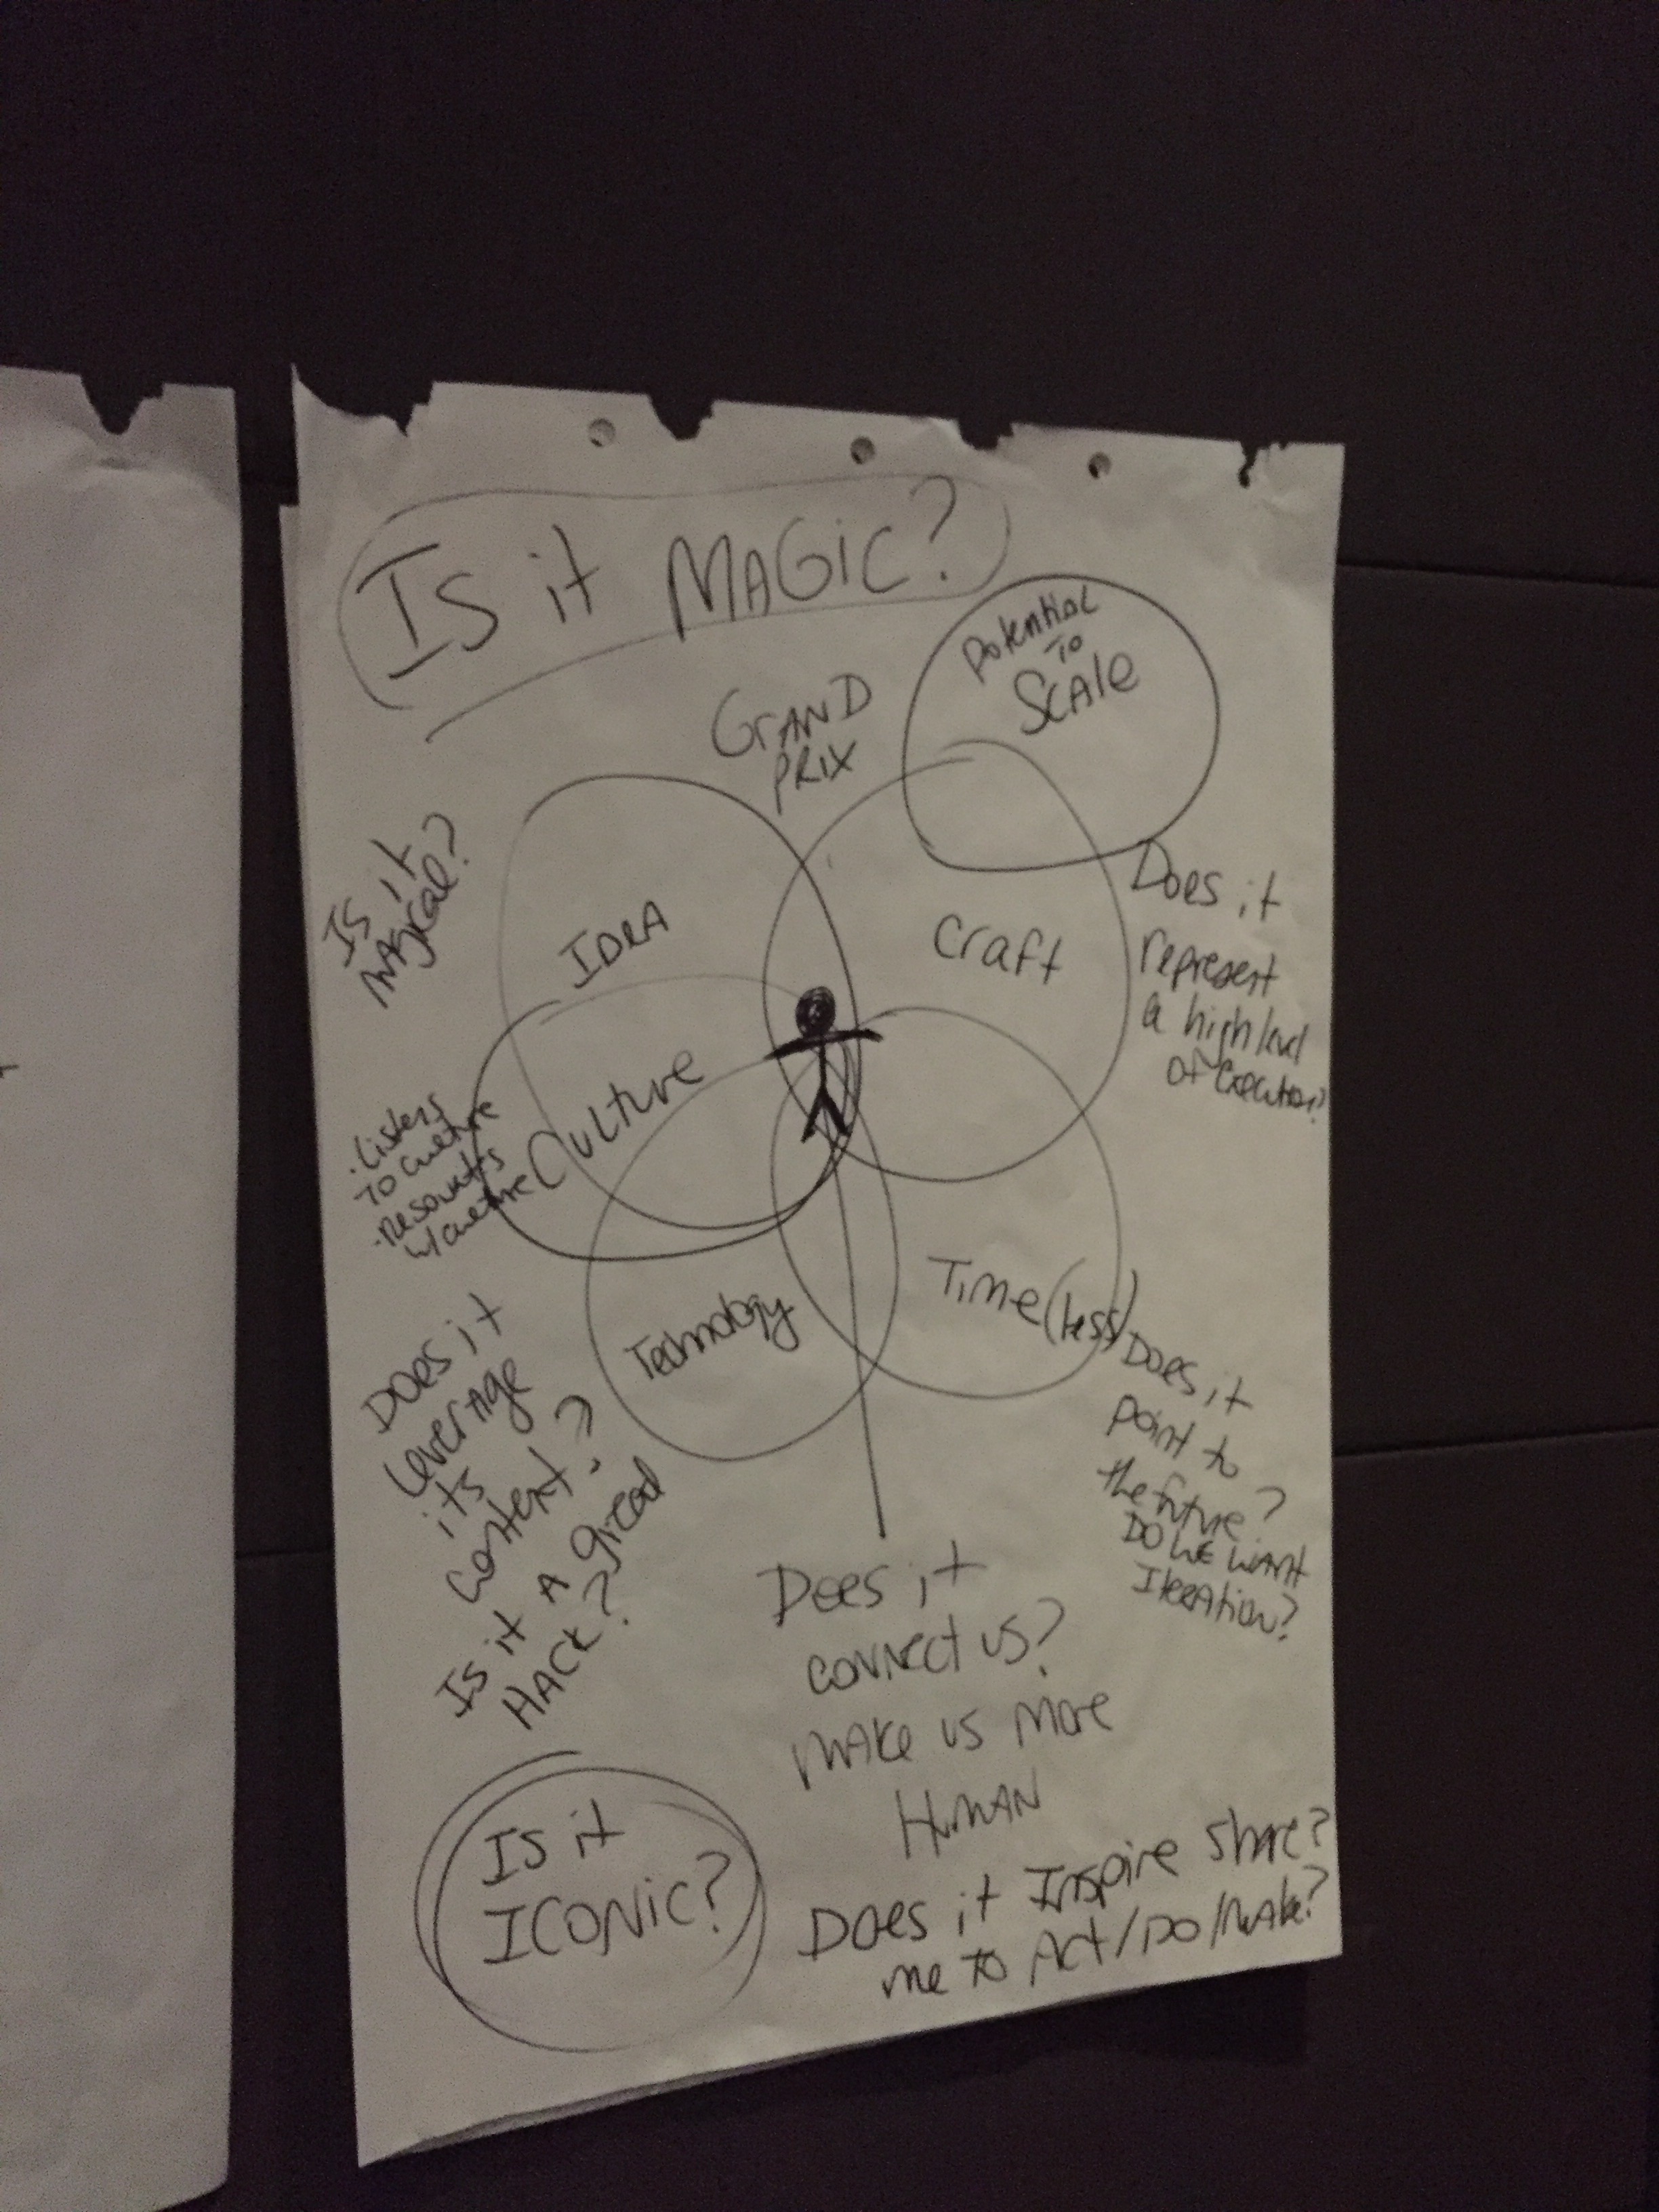 Is it MAGIC?
Potential
To
Scale
GRAND
PRIX
Is it
magical?
IDEA
Craft
Does it
represent
a high level
of execution?
Culture
· Listens
To culture
· Resonates
w/ culture
Technology
Time(less)
Does it
Leverage
its
context?
Is it A great
HACK?
Does it
point to
the future?
DO WE WANT
ITERATION?
Does it
connect us?
Make us More
HUMAN
Is it
ICONIC?
Does it Inspire Share?
me to Act/Do/Make?